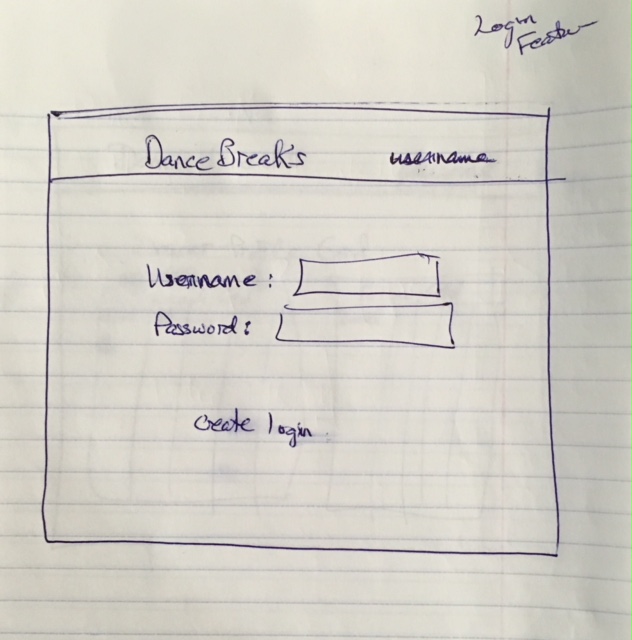 Login
Feature
DanceBreaks username
Username:
Password:
create login